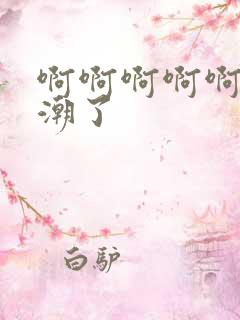 啊啊啊啊啊
潮了
白驴